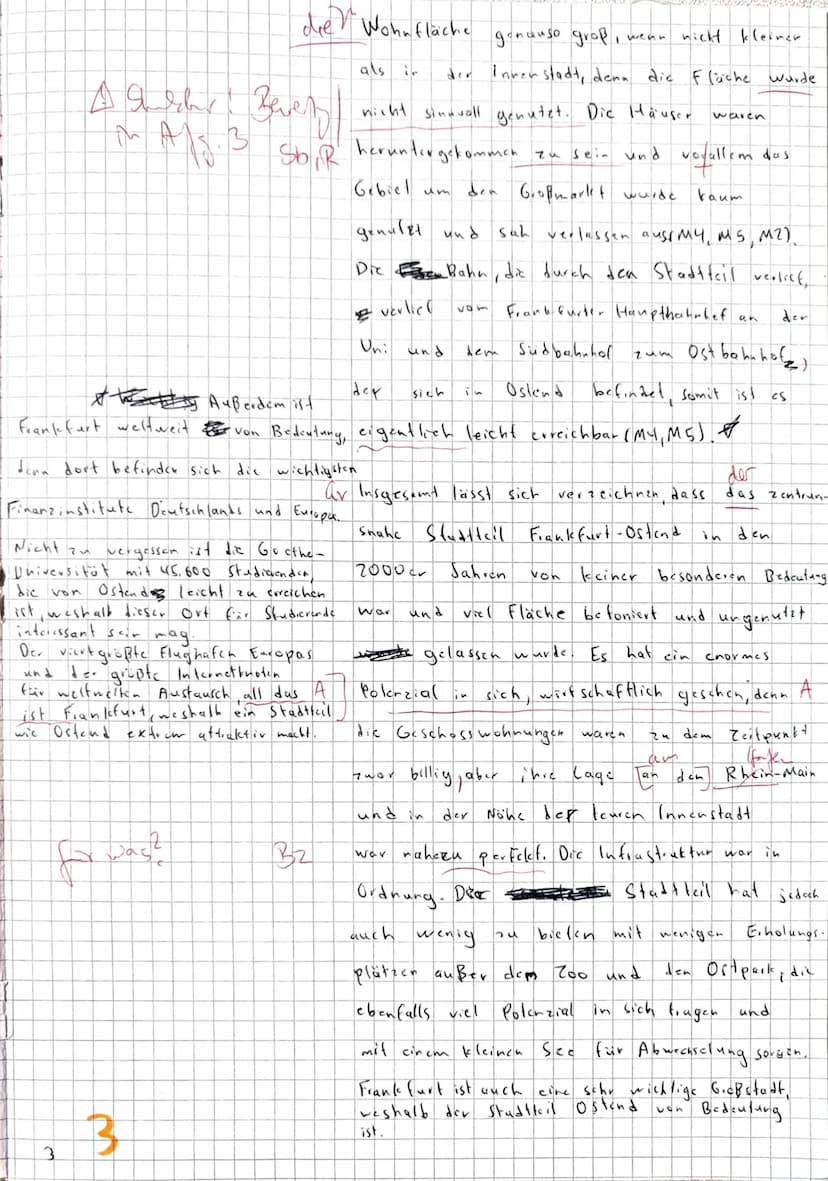 die r Wohnfläche genauso groß, wenn nicht kleiner
als in der Innenstadt, denn die Fläche wurde
nicht sinnvoll genutzt. Die Häuser waren
heruntergekommen zu sein und vorallem das
Gebiet um den Großmarkt wurde kaum
genutzt und sah verlassen aus (M4, M5, M2).
Die Bahn, die durch den Stadtteil verlief,
verlief vom Frankfurter Haupthahnhof an der
Uni und dem Südbahnhof zum Ostbahnhof,
der sich in Ostend befindet, somit ist es
eigentlich leicht erreichbar (M4, M5).
Insgesamt lässt sich verzeichnen, dass das zentrum-
der
snahe Stadtteil Frankfurt-Ostend in den
2000er Jahren von keiner besonderen Bedeutung
war und viel Fläche betoniert und ungenutzt
gelassen wurde. Es hat ein enormes
Potenzial in sich, wirtschaftlich gesehen, denn A
die Geschosswohnungen waren zu dem Zeitpunkt
zwar billig, aber ihre Lage [an den] Rhein-Main
am
und in der Nähe der teuren Innenstadt
war nahezu perfekt. Die Infrastruktur war in
Ordnung. Der Stadtteil hat jedoch
auch wenig zu bieten mit wenigen Erholungs-
plätzen außer dem Zoo und den Ostpark, die
ebenfalls viel Potenzial in sich tragen und
mit einem kleinen See für Abwechselung sorgen.
Frankfurt ist auch eine sehr wichtige Großstadt,
weshalb der Stadtteil Ostend von Bedeutung
ist.
in Afg. 3
Sb, R
Außerdem ist
Frankfurt weltweit von Bedeutung,
denn dort befinden sich die wichtigsten
Finanzinstitute Deutschlands und Europa.
Nicht zu vergessen ist die Goethe-
Universität mit 45.600 Studierenden,
die von Ostend leicht zu erreichen
ist, weshalb dieser Ort für Studierende
interessant sein mag.
Der viertgrößte Flughafen Europas
und der größte Internetknoten
für weltweiten Austausch, all das A
ist Frankfurt, weshalb ein Stadtteil
wie Ostend extrem attraktiv macht.
für was?
Bz
3
3